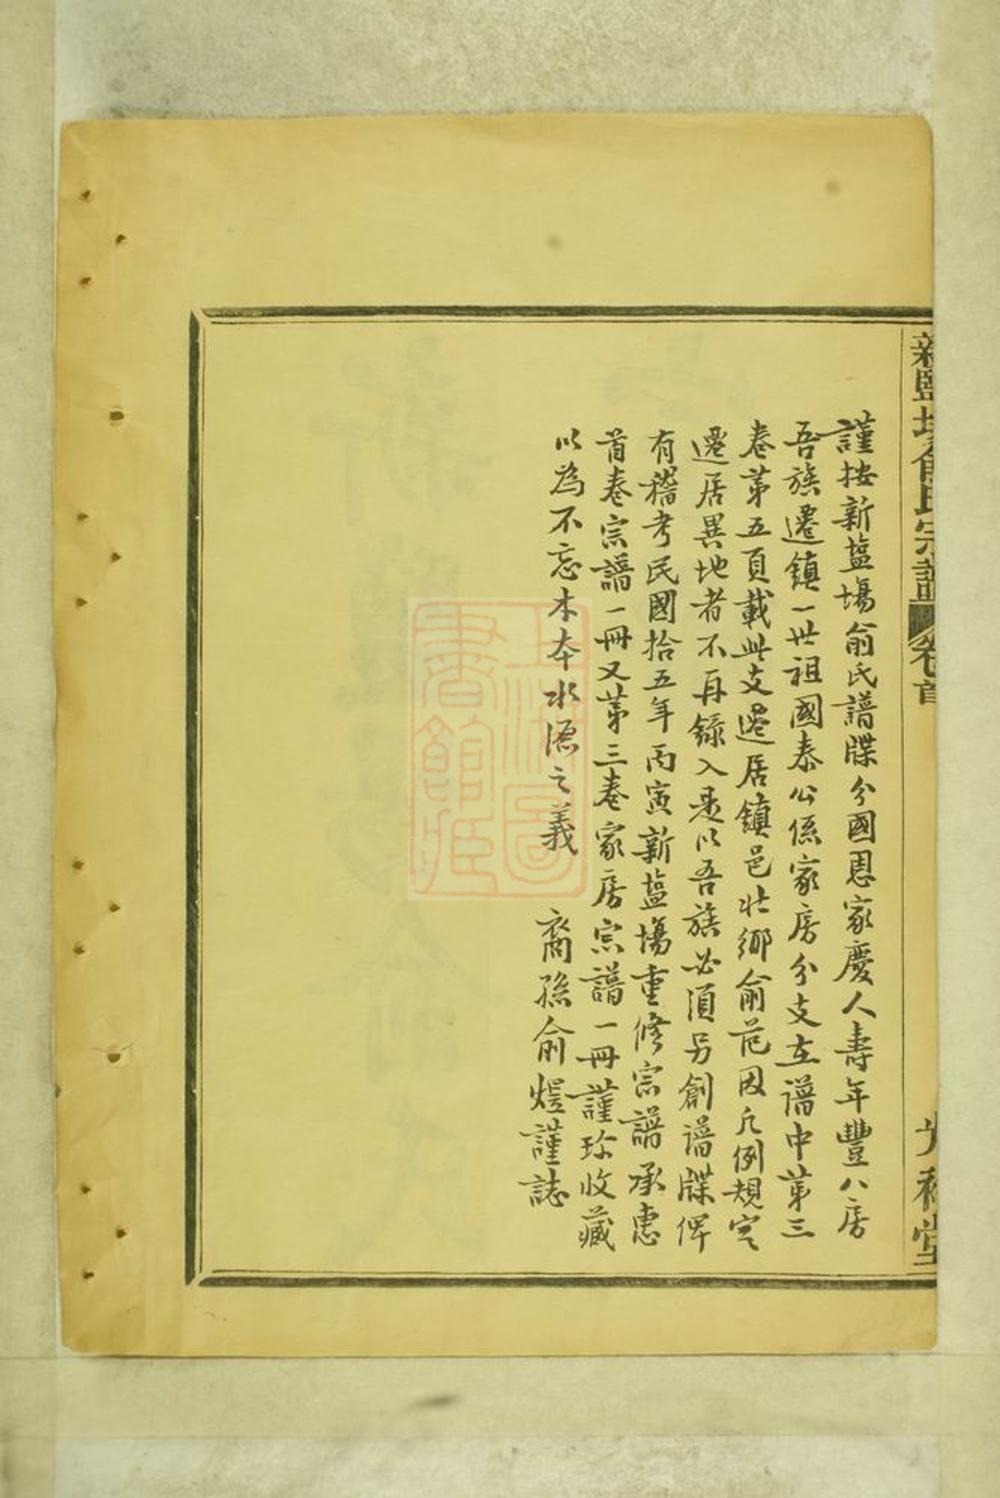 新鹽場俞氏宗譜 卷首
謹按新塩塲俞氏譜牒分國恩家慶人壽年豐八房
吾族遷鎮一世祖國泰公係家房分支在譜中第三
卷第五頁載此支遷居鎮邑壮鄉俞范因凡例規定
遷居異地者不再録入是以吾族必須另創譜牒俾
有稽考民國拾五年丙寅新塩塲重修宗譜承惠
首卷宗譜一冊又第三卷家房宗譜一冊謹珍收藏
以為不忘木本水源之義
裔孫俞煋謹誌
上海圖書館藏